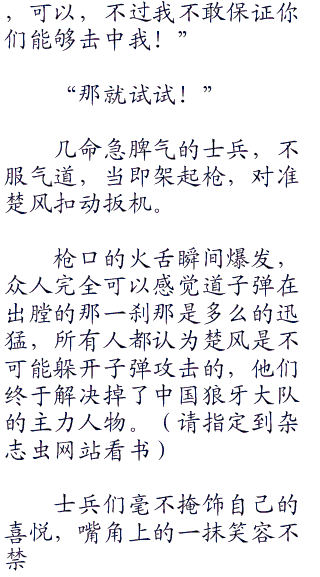 ，可以，不过我不敢保证你
们能够击中我！”
“那就试试！”
几命急脾气的士兵，不
服气道，当即架起枪，对准
楚风扣动扳机。
枪口的火舌瞬间爆发，
众人完全可以感觉道子弹在
出膛的那一刹那是多么的迅
猛，所有人都认为楚风是不
可能躲开子弹攻击的，他们
终于解决掉了中国狼牙大队
的主力人物。（请指定到杂
志虫网站看书）
士兵们毫不掩饰自己的
喜悦，嘴角上的一抹笑容不
禁